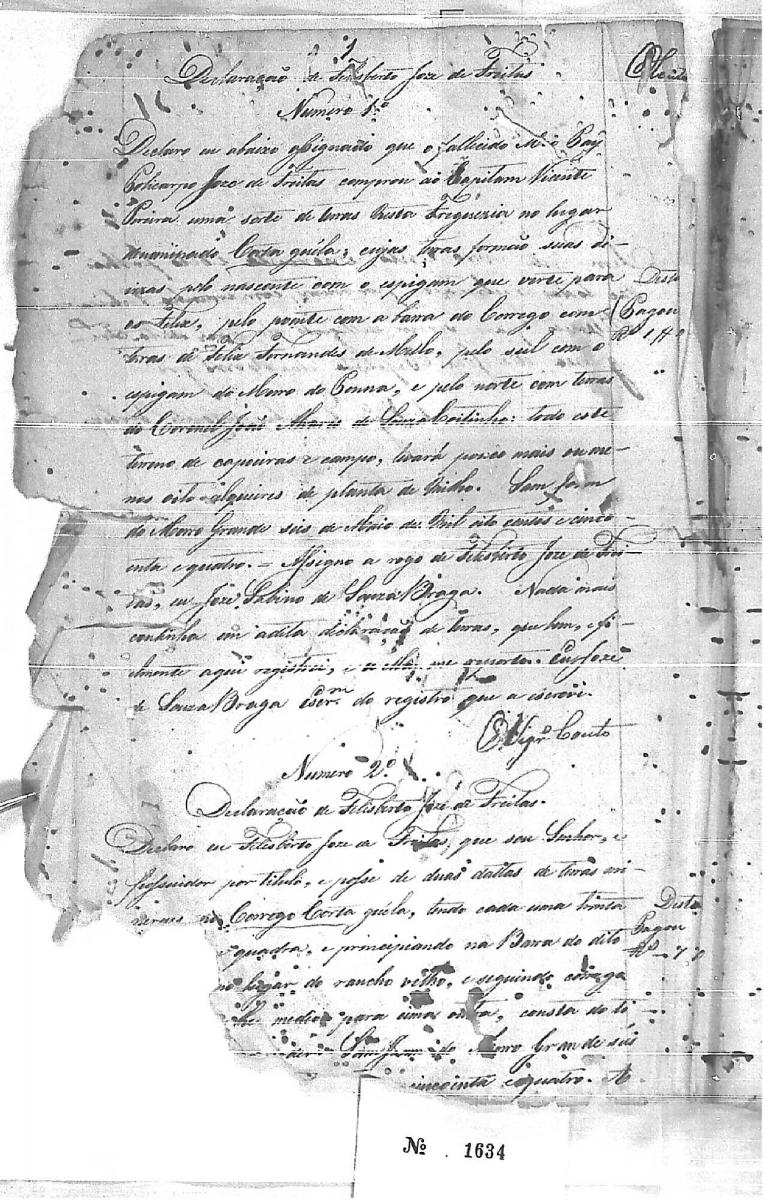 1
Declaração de Felisberto Joze de Freitas
Numero 1.º
Declaro eu abaixo assignado que o fallecido Meo Pay
Policarpo Joze de Freitas comprou ao Capitam Vicente
Pereira uma sorte de terras nesta Freguezia no lugar
denominado Corta guéla, cujas terras formão suas di-
vizas pelo nascente com o espigam que verte para
os Felix, pelo poente com a barra do Corrego com
terras de Felix Fernandes de Mello, pelo sul com o
espigam do Morro do Penna, e pelo norte com terras
do Coronel João Alvares de Souza Coitinho: todo este
terreno de capoeiras e campo, levará pouco mais ou me-
nos oito alqueires de planta de milho. Sam João
do Morro Grande seis de Maio de Mil oito centos e cinco-
enta e quatro. = Assigno a rogo de Felisberto Joze de Frei-
tas, eu Joze Sabino de Souza Braga. Nada mais
continha em a dita declaração de terras, que bem, e fi-
elmente aqui registrei, e a Ella me reporto. Eu Joze
de Souza Braga Escr.m do registro que a escrevi.
O Vigr.º Couto
Desta
Pagou
Rs
Numero 2.º
Declaração de Felisberto Joze de Freitas.
Declaro eu Felisberto Joze de Freitas, que sou Senhor, e
possuidor por titulo, e posse de duas dattas de terras mi-
neraes no Corrego Corta guéla, tendo cada uma trinta
quadra, e principiando na Barra do dito
no lugar do rancho velho, e seguindo corrego
medio para uma outra, consta do ti-
Sam João do Morro Grande seis
incoenta e quatro. A
Desta
Pagou
Rs
Nº 1634